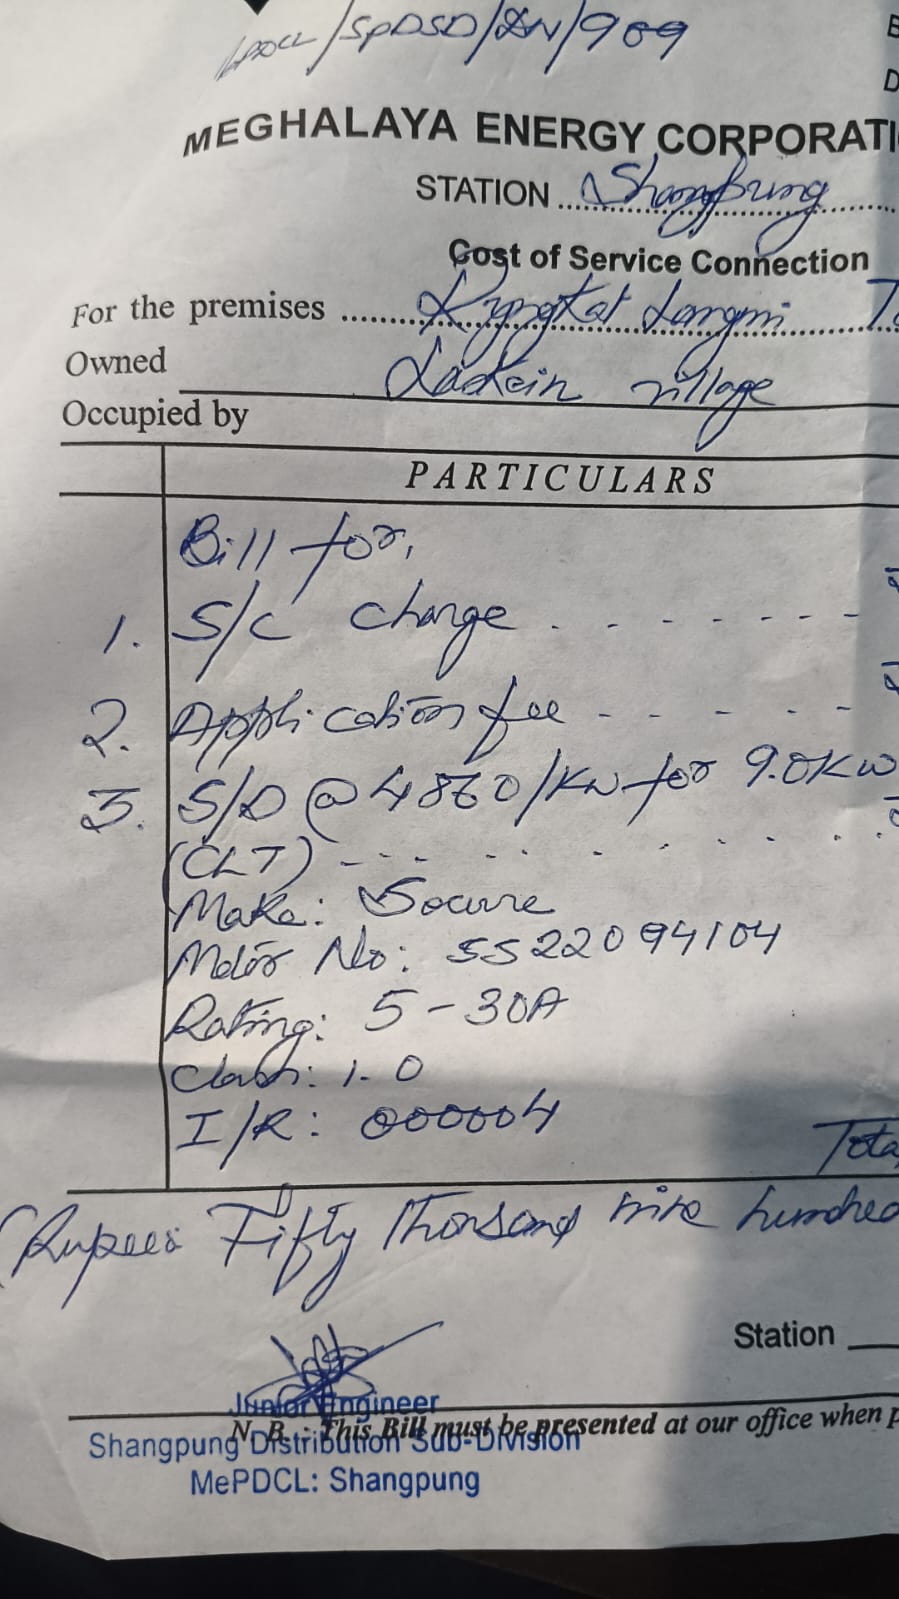 /SPDSD/XN/909
MEGHALAYA ENERGY CORPORATI
STATION Shangpung
Cost of Service Connection
For the premises Langmi
Owned
Ladkein village
Occupied by
PARTICULARS
Bill for,
1. S/C Charge
2. Application fee
3. S/D @ 4860/KW for 9.0KW
(CLT)
Make: Secure
Meter No: SS22094104
Rating: 5-30A
Class: 1.0
I/R: 000004
Tota
(Rupees Fifty thousand nine hundred
Station
Junior Engineer
N. B. : This Bill must be presented at our office when p
Shangpung Distribution Sub-Division
MePDCL: Shangpung